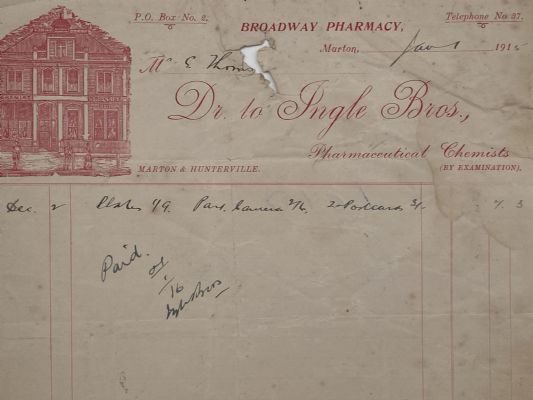 P.O. Box No. 2.
BROADWAY PHARMACY,
Telephone No 27.
Marton, Jan 1 191
Mr E Thoms
Dr. to Ingle Bros.,
Pharmaceutical Chemists
(BY EXAMINATION).
MARTON & HUNTERVILLE.
Dec. 2 1/9. Camera 2/6. 2 Postcards 3
Paid.
16
Bros